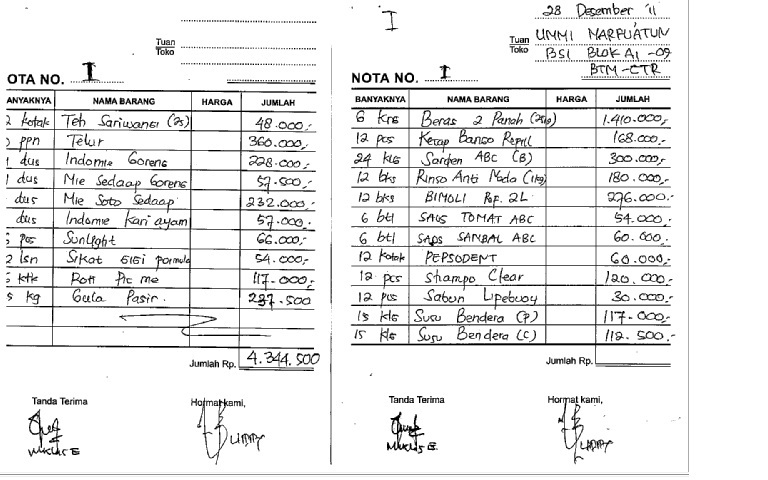 Tuan
Toko
NOTA NO. I
BANYAKNYA NAMA BARANG HARGA JUMLAH
2 kotak Teh Sariwangi (25) 48.000,-
ppn Telur 360.000,-
dus Indomie Goreng 228.000,-
1 dus Mie Sedaap Goreng 57.500,-
dus Mie Soto Sedaap 232.000,-
dus Indomie Kari ayam 57.000,-
pcs Sunlight 66.000,-
2 lsn Sikat gigi formula 54.000,-
ktk Roti Pic me 117.000,-
5 kg Gula Pasir. 237.500
Jumlah Rp. 4.344.500
Tanda Terima Hormat kami,
Muklis E UMMY
I
28 Desember '11
Tuan UMMI MARPU'ATUN
Toko BSI BLOK A1 -09
BTM -CTR
NOTA NO. I
BANYAKNYA NAMA BARANG HARGA JUMLAH
6 krg Beras 2 Panah 1.410.000,-
12 pcs Kecap Bango Refill 168.000,-
24 klg Sarden ABC (B) 300.000,-
12 bks Rinso Anti Noda (1kg) 180.000,-
12 bks BIMOLI Rep. 2L 276.000,-
6 btl SAOS TOMAT ABC 54.000,-
6 btl SAOS SAMBAL ABC 60.000,-
12 kotak PEPSODENT 60.000,-
12 pcs Shampo Clear 120.000,-
12 pcs Sabun Lipebuoy 30.000,-
15 klg Susu Bendera (P) 117.000,-
15 klg Susu Bendera (C) 112.500,-
Jumlah Rp.
Tanda Terima Hormat kami,
Muklis E. UMMY